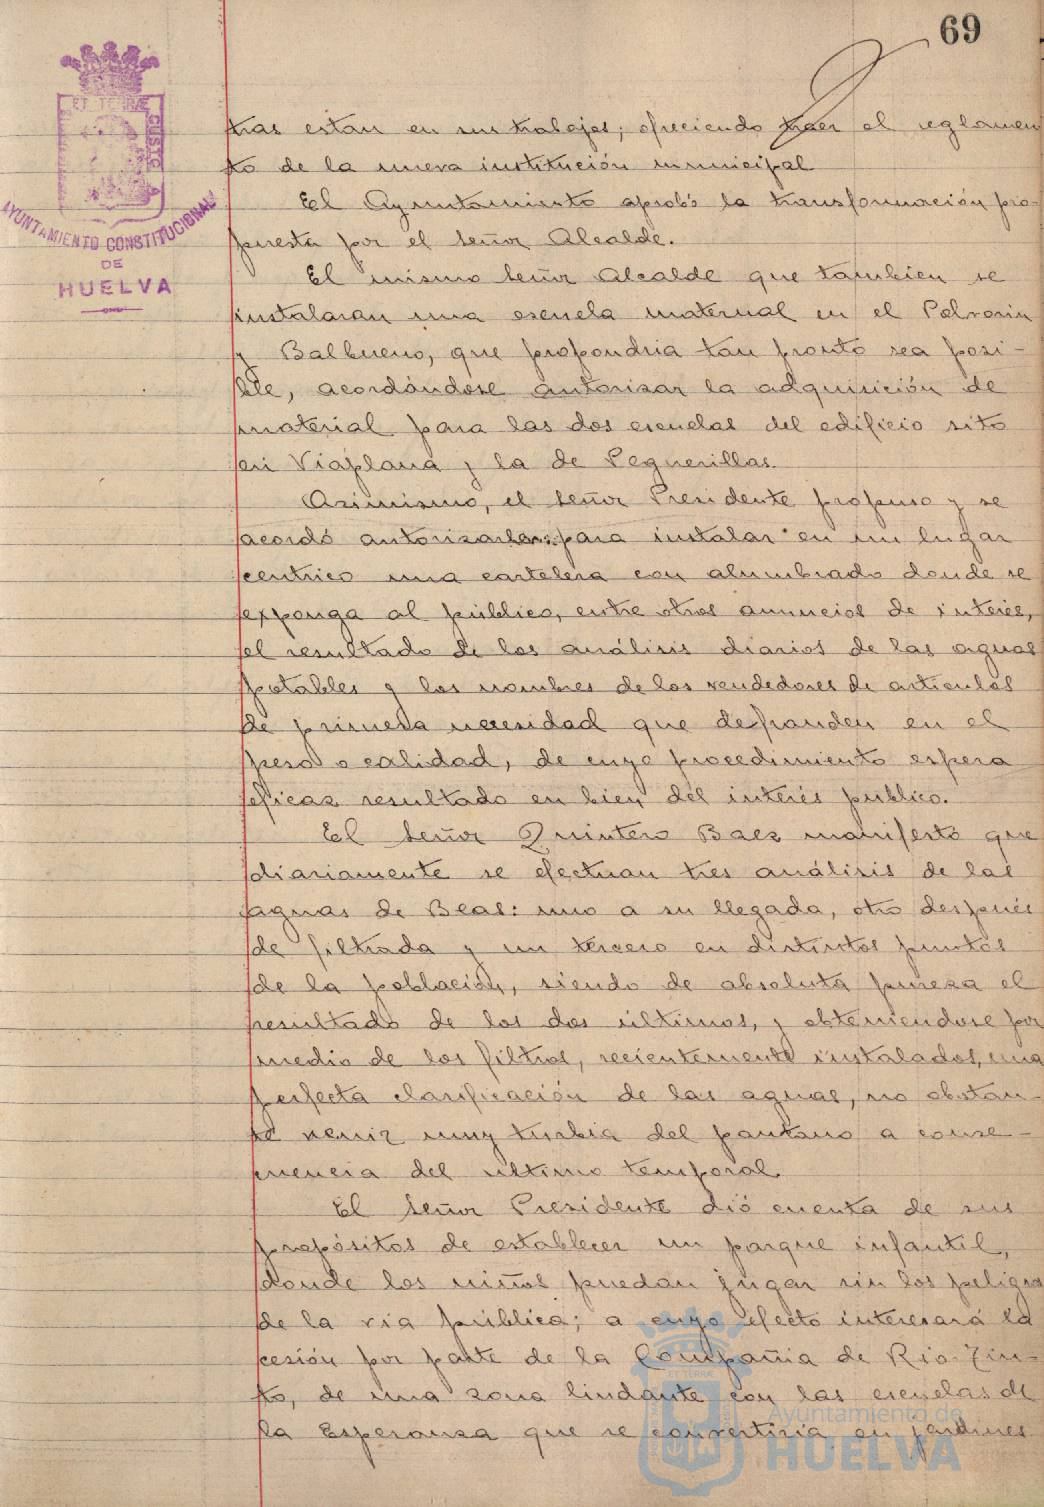 69
ET TERRÆ
CUSTO
AYUNTAMIENTO CONSTITUCIONAL
DE
HUELVA
tras estan en sus trabajos; ofreciendo traer el reglamen
to de la nueva institución municipal
El Ayuntamiento aprobó la transformación pro-
puesta por el señor Alcalde.
El mismo señor Alcalde que tambien se
instalaran una escuela maternal en el Polvorin
y Balbueno, que propondria tan pronto sea posi-
ble, acordándose autorizar la adquisición de
material para las dos escuelas del edificio sito
en Viaplana y la de Peguerillas.
Asimismo, el señor Presidente propuso y se
acordó autorizarle para instalar en un lugar
centrico una cartelera con alumbrado donde se
exponga al público, entre otros anuncios de interés,
el resultado de los análisis diarios de las aguas
potables y los nombres de los vendedores de articulos
de primera necesidad que defrauden en el
peso o calidad, de cuyo procedimiento espera
eficaz resultado en bien del interés publico.
El señor Quintero Baez manifestó que
diariamente se efectuan tres análisis de las
aguas de Beas: uno a su llegada, otro después
de filtrada y un tercero en distintos puntos
de la población, siendo de absoluta pureza el
resultado de los dos últimos, y obteniendose por
medio de los filtros, recientemente instalados, una
perfecta clarificación de las aguas, no obstan-
te venir muy turbia del pantano a conse-
cuencia del ultimo temporal.
El señor Presidente dió cuenta de sus
propósitos de establecer un parque infantil,
donde los niños puedan jugar sin los peligros
de la via pública; a cuyo efecto interesará la
cesión por parte de la Compañia de Rio-Tin-
to, de una zona lindante con las escuelas de
la Esperanza que se convertiria en jardines
Ayuntamiento de
HUELVA